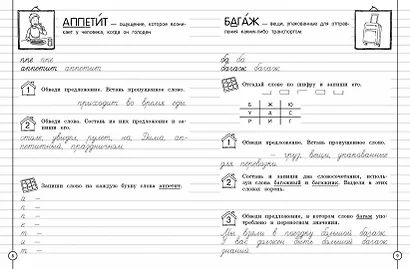 АППЕТИ́Т — ощущение, которое возни-
кает у человека, когда он голоден.
ппе ппе
аппетит аппетит
1 Обведи предложение. Вставь пропущенное слово.
приходит во время еды.
2 Обведи слова. Составь из них предложение и за-
пиши его.
столе, увидел, рулет, на, Дима, ап-
петитный, праздничном.
Запиши слово на каждую букву слова аппетит.
а –
п –
п –
е –
т –
и –
т –
8
БАГА́Ж — вещи, упакованные для отправ-
ления каким-либо транспортом.
ба ба
багаж багаж
Отгадай слово по шифру и запиши его.
Б Ж Ю
У А С
Р И Г
1 Обведи предложение. Вставь пропущенное слово.
– груз, вещи, упакованные
для перевозки.
2 Составь и запиши два словосочетания, исполь-
зуя слова багажный и багажник. Выдели в этих
словах корень.
3 Обведи предложение, в котором слово багаж упо-
треблено в переносном значении.
Мы взяли в поездку большой багаж.
У вас должен быть большой багаж
знаний.
9